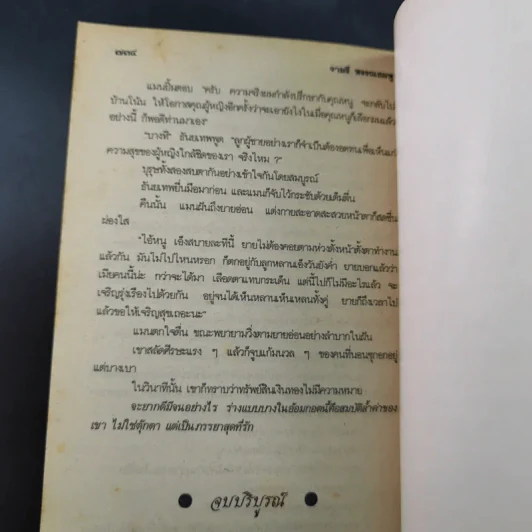 ๗๗๔
แมนยิ้มตอบ "ครับ ความจริงผมกำลังปรึกษากับคุณหนู จะกลับไป
บ้านโน้น ให้โอกาสคุณผู้หญิงอีกครั้งว่าจะเอายังไงในเมื่อคุณหนูก็เลือกผมแล้ว
อย่างนี้ ก็พอดีท่านมาเอง"
"บางที" ธันยเทพพูด "ลูกผู้ชายอย่างเราก็จำเป็นต้องอดทนเพื่อเห็นแก่
ความสุขของผู้หญิงใกล้ชิดของเรา จริงไหม ?"
บุรุษทั้งสองสบตากันอย่างเข้าใจกันโดยสมบูรณ์
ธันยเทพยื่นมือมาก่อน และแมนก็จับไว้กระชับด้วยเต็มตื้น
คืนนั้น แมนฝันถึงยายอ่อน แต่งกายสะอาดสะสวยหน้าตาก็สดชื่น
ผ่องใส
"ไอ้หนู เอ็งสบายละทีนี้ ยายไม่ต้องคอยตามห่วงตั้งหน้าตั้งตาทำงาน
แล้วกัน มันไม่ไปไหนหรอก ก็ตกอยู่กับลูกหลานเอ็งวันยังค่ำ ยายบอกแล้วว่า
เมียคนนี้น่ะ กว่าจะได้มา เลือดตาแทบกระเด็น แต่นี้ไปก็ไม่มีอะไรแล้ว จะ
เจริญรุ่งเรืองไปด้วยกัน อยู่จนได้เห็นหลานเห็นเหลนทั้งคู่ ยายก็ถึงเวลาไป
แล้วขอให้เจริญสุขเถอะนะ"
แมนตกใจตื่น ขณะพยายามวิ่งตามยายอ่อนอย่างลำบากในฝัน
เขาสลัดศีรษะแรง ๆ แล้วก็จูบแก้มนวล ๆ ของคนที่นอนซุกอกอยู่
แต่บางเบา
ในวินาทีนั้น เขาก็ทราบว่าทรัพย์สินเงินทองไม่มีความหมาย
จะยากดีมีจนอย่างไร ร่างแบบบางในอ้อมกอดนี้คือสมบัติล้ำค่าของ
เขา ไม่ใช่ตุ๊กตา แต่เป็นภรรยาสุดที่รัก
● จบบริบูรณ์ ●